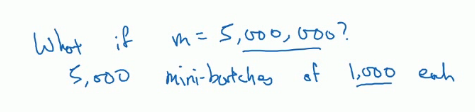 What if m = 5,000,000?
5,000 mini-batches of 1,000 each